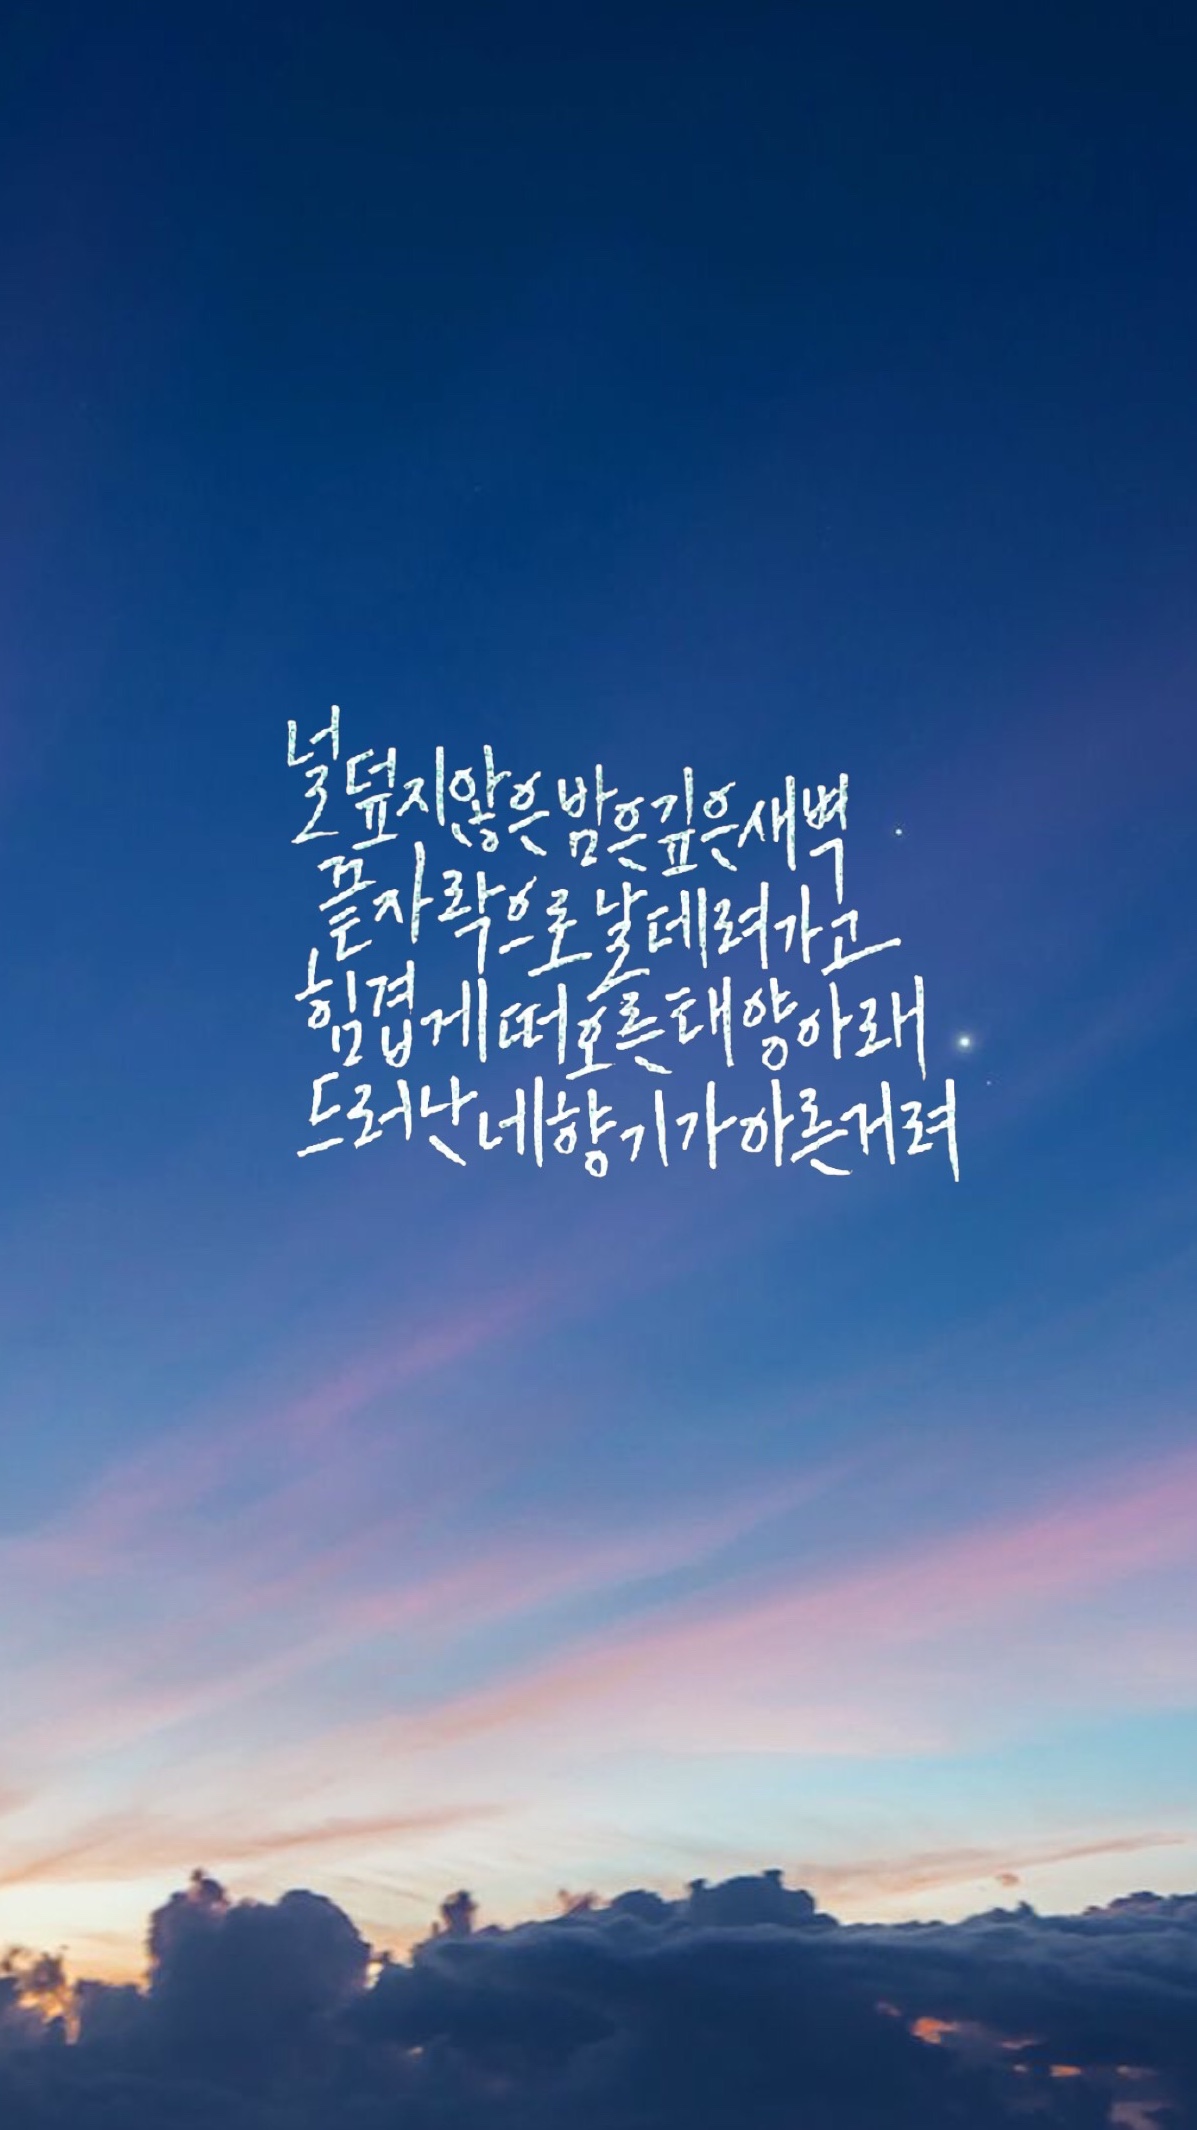 널 덮지 않은 밤은 깊은 새벽
끝자락으로 날 데려가고
힘겹게 떠오른 태양 아래
드러난 네 향기가 아른거려